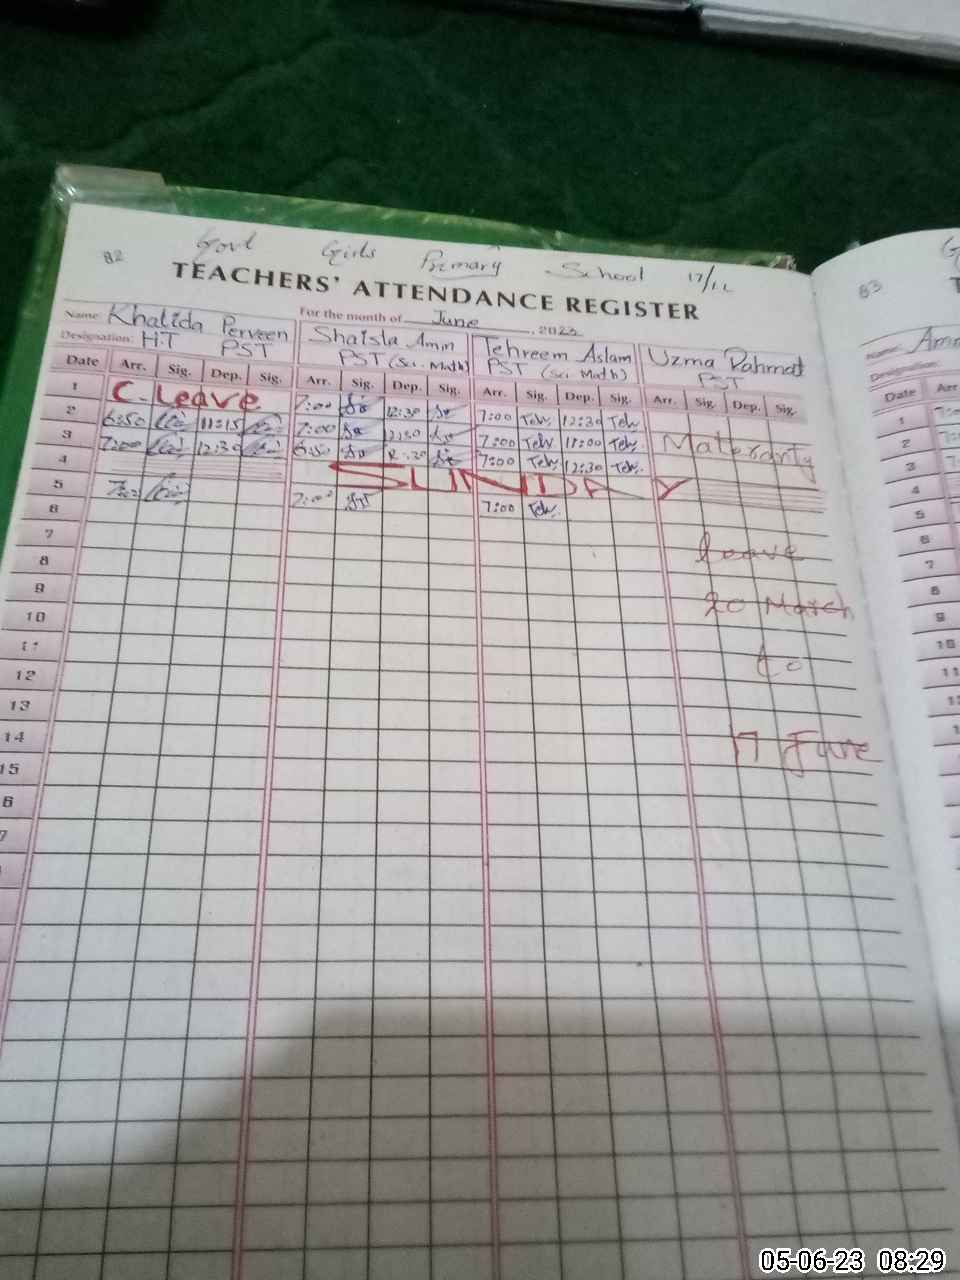 82 Govt Girls Primary School 17/1L
TEACHERS' ATTENDANCE REGISTER
For the month of June, 2023
Name: Khalida Perveen Shaista Amin Tehreem Aslam Uzma Rahmat
Designation: H.T PST PST (Sci. Math) PST (Sci. Math) PST
Date Arr. Sig. Dep. Sig. Arr. Sig. Dep. Sig. Arr. Sig. Dep. Sig. Arr. Sig. Dep. Sig.
1 C. Leave 7:00 12:30 7:00 Teh. 12:30 Teh.
2 6:50 11:15 7:00 12:30 7:00 Teh. 11:00 Teh. Materanty
3 7:00 12:30 6:50 12:30 7:00 Teh. 12:30 Teh.
4 SUNDAY
5 7:00 7:00 Teh.
6
7 Leave
8
9 20 March
10
11 to
12
13
14 17 June
15
6
7
83
Name:
Designation:
Date Arr
1
2
3
4
5
6
7
8
9
10
11
12
05-06-23 08:29